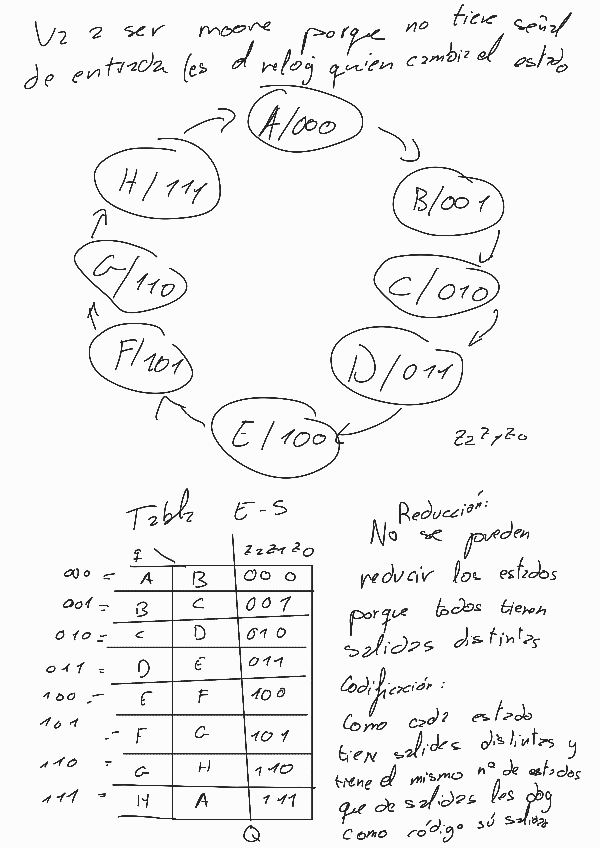 Va a ser moore porque no tiene señal
de entrada (es el reloj quien cambia el estado
A/000
H/111
B/001
G/110
C/010
F/101
D/011
E/100
z2 z1 z0
Tabla E-S
q z2 z1 z0
000 = A B 000
001 = B C 001
010 = C D 010
011 = D E 011
100 = E F 100
101 = F G 101
110 = G H 110
111 = H A 111
Q
Reducción:
No se pueden
reducir los estados
porque todos tienen
salidas distintas
Codificación:
Como cada estado
tiene salidas distintas y
tiene el mismo nº de estados
que de salidas les doy
como código sú salida